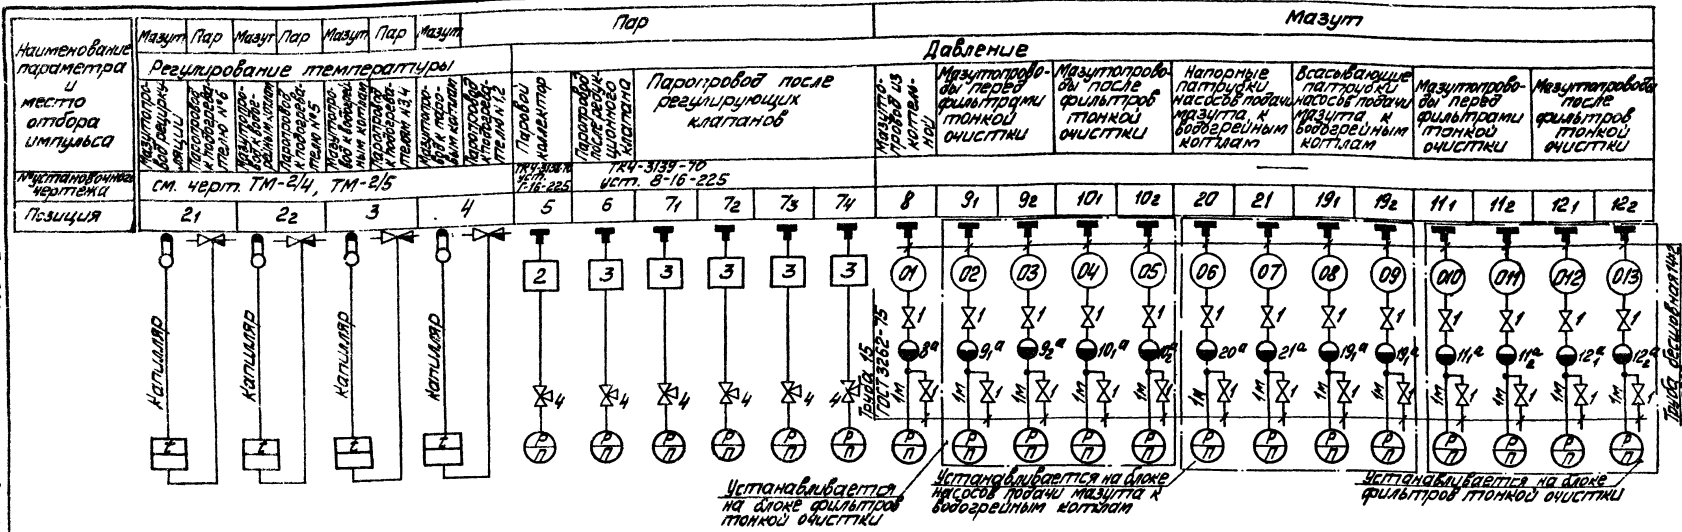 Мазут Пар Мазут Пар Мазут Пар Мазут
Пар
Мазут
Наименование
параметра
и
место
отбора
импульса
Регулирование температуры
Давление
Мазутопро-
вод рецирку-
ляции
Паропровод
к подогрева-
телю №6
Мазутопро-
вод к водогрей-
ным котлам
Паропровод
к подогрева-
телю №5
Мазутопро-
вод к водогрей-
ным котлам
Паропровод
к подогрева-
телям 3,4
Мазутопро-
вод к паро-
вым котлам
Паропровод
к подогрева-
телям 1,2
Паровой
коллектор
Паропровод
после редук-
ционного
клапана
Паропровод после
регулирующих
клапанов
Мазуто-
провод из
котель-
ной
Мазутопрово-
ды перед
фильтрами
тонкой
очистки
Мазутопрово-
ды после
фильтров
тонкой
очистки
Напорные
патрубки
насосов подачи
мазута к
водогрейным
котлам
Всасывающие
патрубки
насосов подачи
мазута к
водогрейным
котлам
Мазутопрово-
ды перед
фильтрами
тонкой
очистки
Мазутопроводы
после
фильтров
тонкой
очистки
№ установочного
чертежа
см. черт. ТМ-2/4, ТМ-2/5
ТК4-3138-70
уст.
7-16-225
ТК4-3139-70
уст. 8-16-225
—
Позиция 2₁ 2₂ 3 4 5 6 7₁ 7₂ 7₃ 7₄ 8 9₁ 9₂ 10₁ 10₂ 20 21 19₁ 19₂ 11₁ 11₂ 12₁ 12₂
2 3 3 3 3 3 01 02 03 04 05 06 07 08 09 010 011 012 013
1 1 1 1 1 1 1 1 1 1 1 1 1
8ᵃ 9₁ᵃ 9₂ᵃ 10₁ᵃ 10₂ᵃ 20ᵃ 21ᵃ 19₁ᵃ 19₁ᵃ 11₁ᵃ 11₂ᵃ 12₁ᵃ 12₂ᵃ
Капилляр
Капилляр
Капилляр
Капилляр
Труба 15
ГОСТ 3262-75
Труба бесшовная 14х2
4 4 4 4 4 4
1м 1 1м 1 1м 1 1м 1 1м 1 1м 1 1м 1 1м 1 1м 1 1м 1 1м 1 1м 1 1м 1
t t t t
Р Р Р Р Р Р Р Р Р Р Р Р Р Р Р Р Р Р Р
П П П П П П П П П П П П П П П П П П П
Устанавливается
на блоке фильтров
тонкой очистки
Устанавливается на блоке
насосов подачи мазута к
водогрейным котлам
Устанавливается на блоке
фильтров тонкой очистки